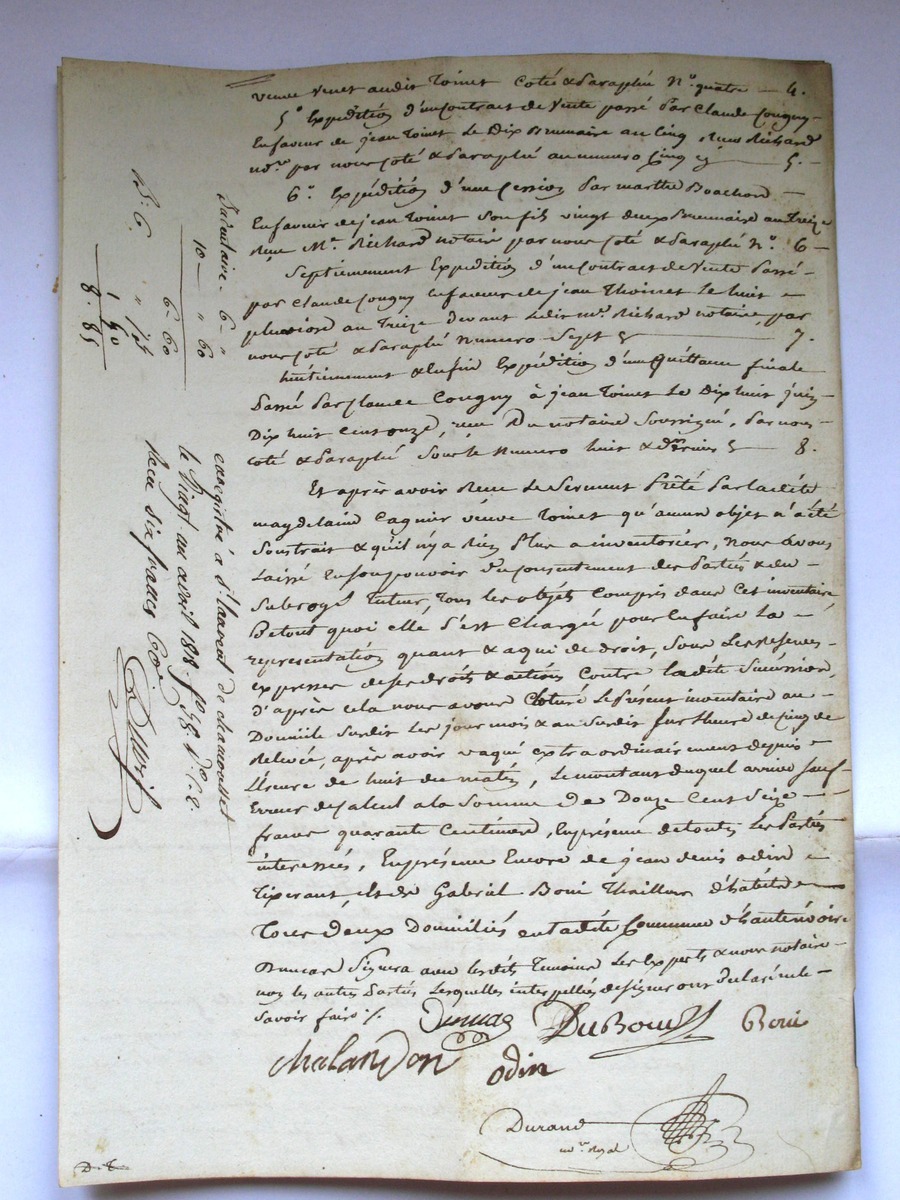 veuve venet audit Toinet Coté & Paraphé N.° quatre — 4.
5° Expédition d'un Contrat de Vente passé Par Claude Cougny
En faveur de jean Toinet Le Dix Brumaire an Cinq Reçu Richard
no.re par nous Coté & Paraphé au numero Cinq — 5. —
6° Expédition d'une Cession Par marthe Boachon
En faveur de jean Toinet Son fils vingt deux Brumaire an Treize
Reçu M.e Richard notaire par nous Coté & Paraphé N.° 6 —
Septiemement Expédition d'un Contrat de Vente Passé
par Claude Cougny En faveur de jean Thoinet Le huit
pluviose an Treize Devant Ledit m.e Richard notaire, par
nous Coté & Paraphé Numero Sept — 7.
huitiemement & Enfin Expédition d'une Quittance finale
Passé Par Claude Cougny à jean Toinet Le Dix huit juin
Dix huit Cent onze, reçue Du notaire Soussigné, Par nous
Coté & Paraphé Sous le Numero huit & dernier — 8.
Et après avoir Reçu Le Serment Prêté Par Ladite
magdelaine Cagnier veuve Toinet qu'aucun objet n'a été
Soustrait & qu'il n'y a Rien Plus a inventorier, Nous avons
Laissé En Son pouvoir Du Consentement des Parties & du
Subrogé Tuteur, Tous les objets Compris dans Cet inventaire
De tout quoi elle S'est Chargée pour En faire La
représentation quant & a qui de droit, Sous Les Réserves
expresses de Ses droits & actions Contre Ladite Succession,
D'après Cela nous avons Cloturé Le Présent inventaire au
Domicile Susdit Les jour mois & an Susdit Sur L'heure de Cinq de
Relevée, après avoir vaqué extraordinairement depuis
L'heure de huit du matin, Le montant duquel arrive Sauf
Erreur de Calcul a la Somme De Douze Cent Seize
francs quarante Centimes, En présence de toutes Les Parties
interessées, En présence Encore de jean denis odin
Tixerant, et de Gabriel Boni Thailleur d'habits
Tous Deux Domiciliés en Ladite Commune d'hauterivoire
Signera avec Lesdits Temoins Les Experts & nous notaire
non les autres Parties Lesquelles interpellées de Signer ont Déclaré ne le
Savoir faire /.
DuBouis Boni
Chalandon odin
Durand
no.re Royal
D. T.
Inventaire — 6 — "
10 — " 60
6 — 60
" 
1 —
8. 85
enregistré à S.t Laurent de chamousset
le Vingt un avril 1818 f.o 58 V.o C. 2.
Reçu six francs